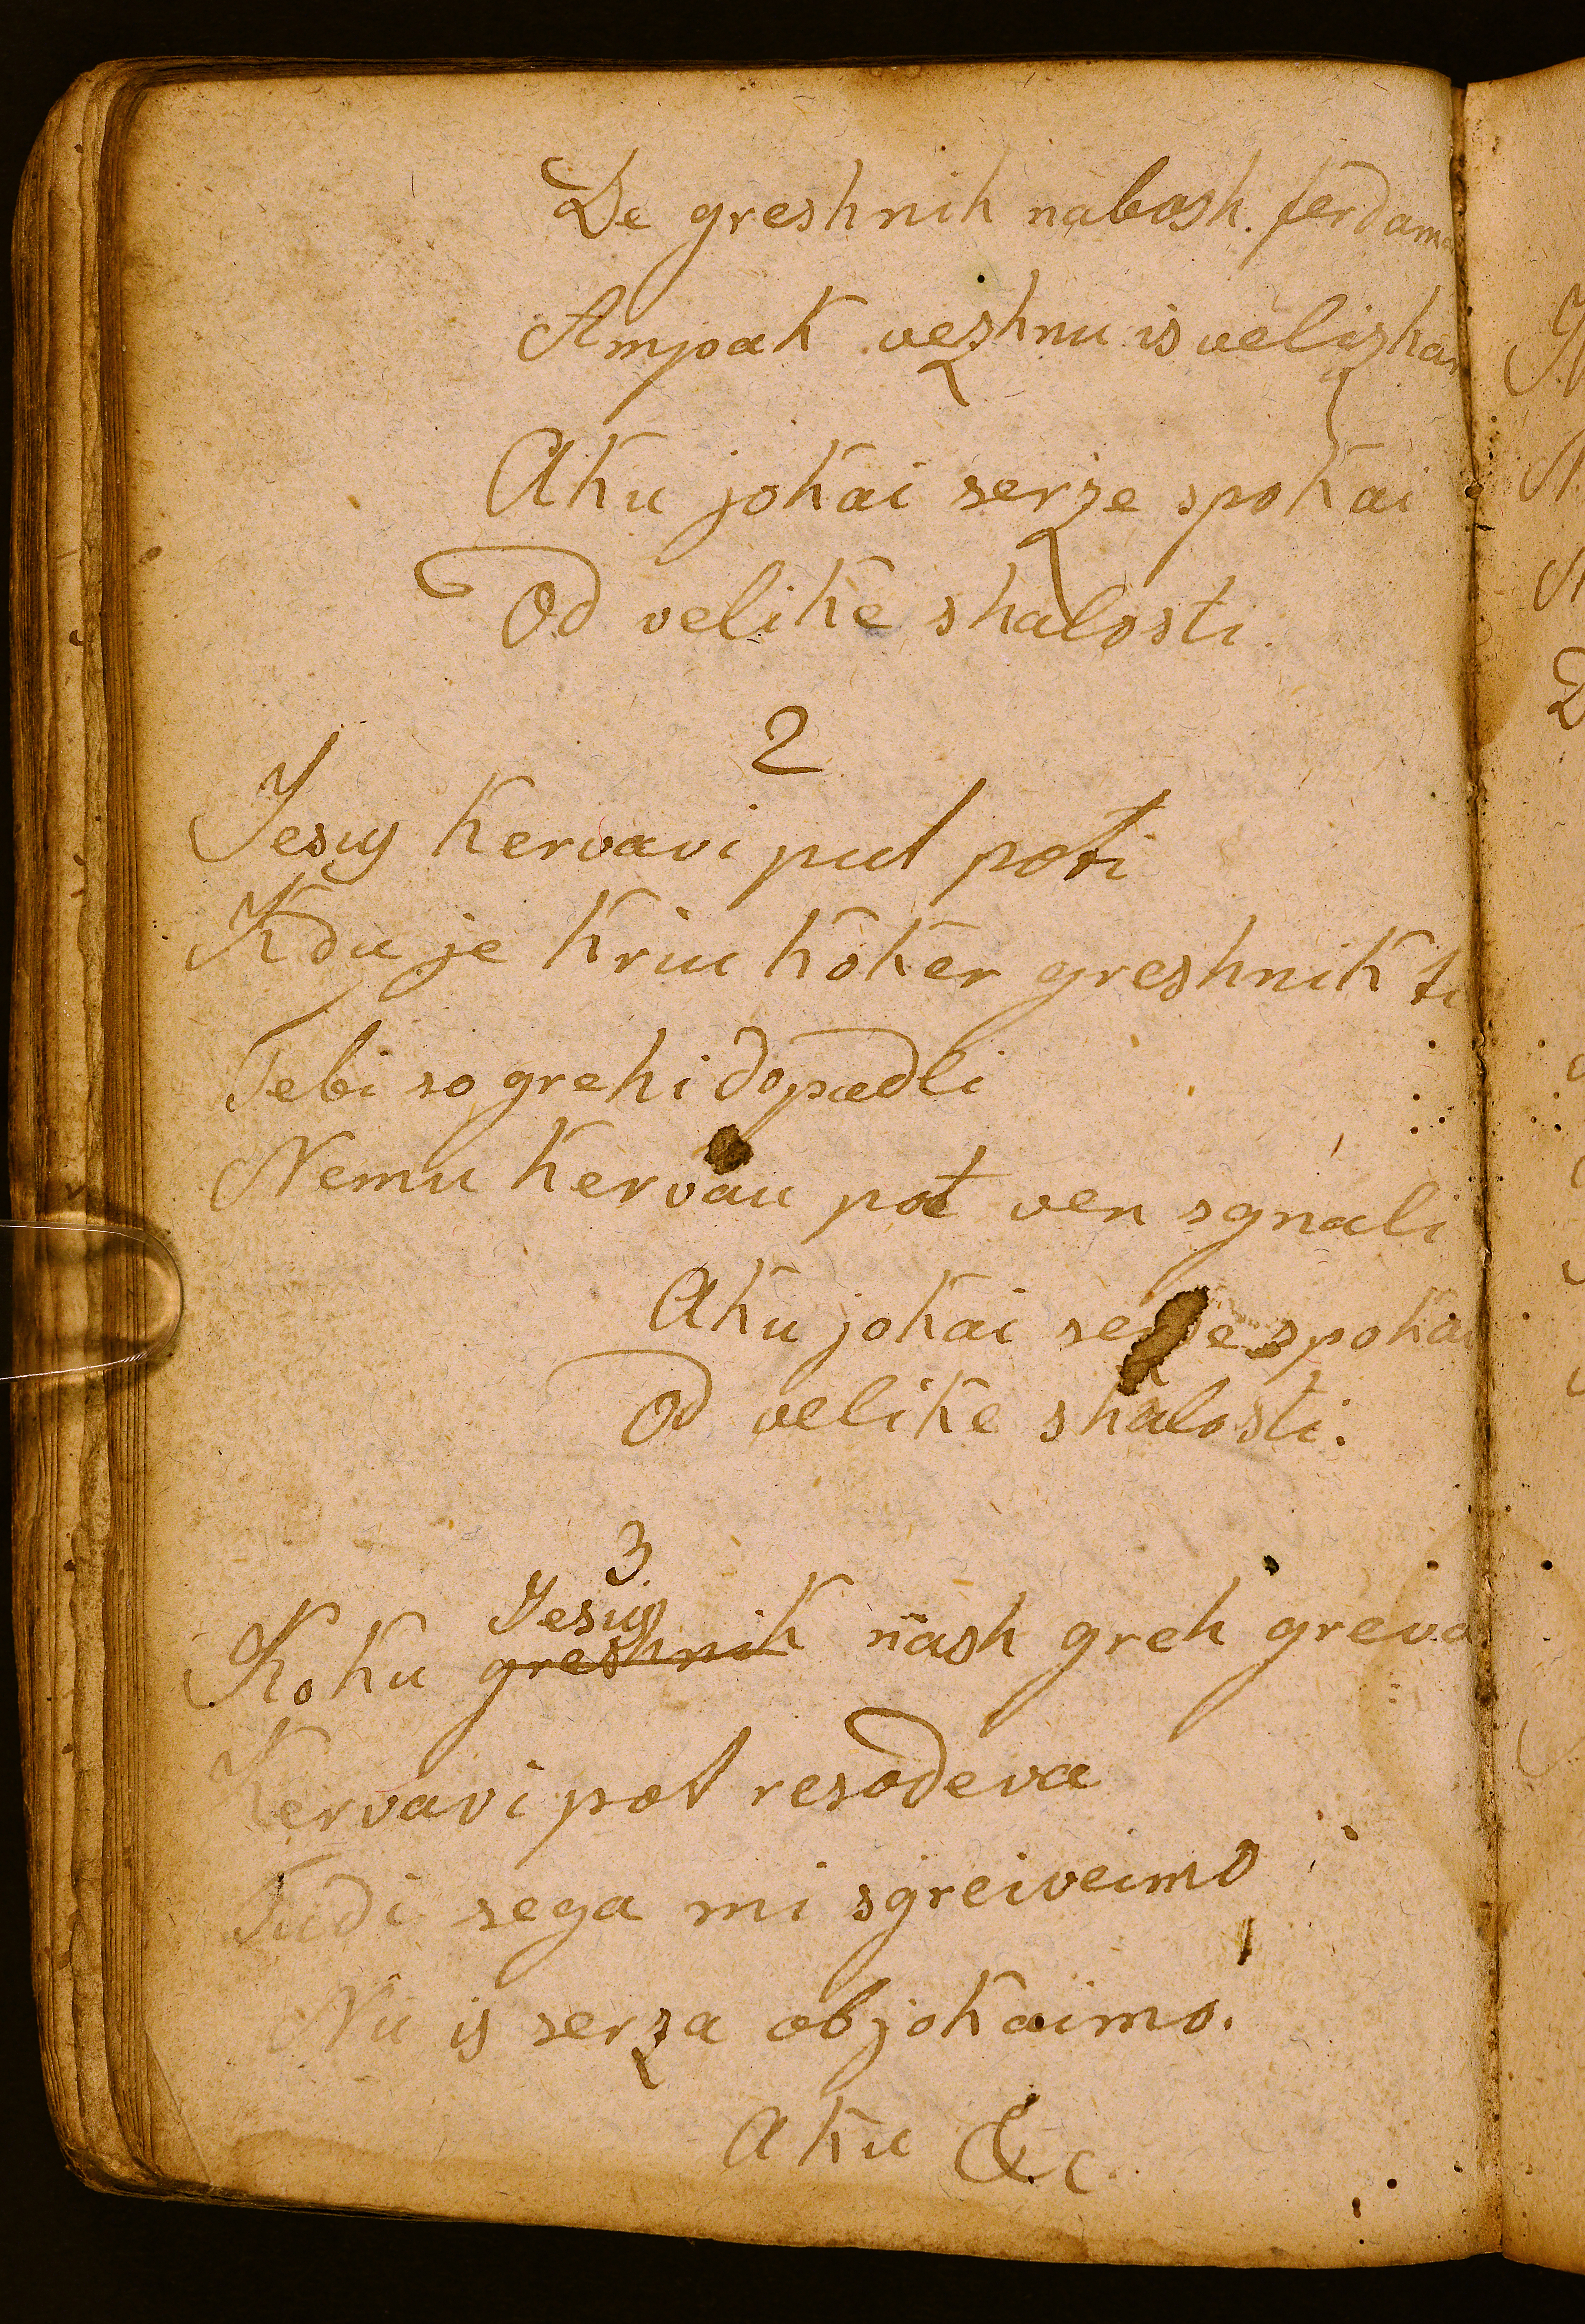 De greshnik nabosh. ferdam
Ampak vezhnu isvelizhan
Aku jokai serze spokai
Od velike shalosti
2
Jesus kervavi put poti
Kdu je kriu koker greshnik ti
Tebi so grehi dopadli
Nemu kervau pot ven sgnali
Aku jokai serze spokai
Od velike shalosti.
3
Jesus
Koku greshnik nash greh greva
Kervavi pot resodeva
Tudi sega mi sgreiveimo
Nu is serza objokaimo.
Aku &c